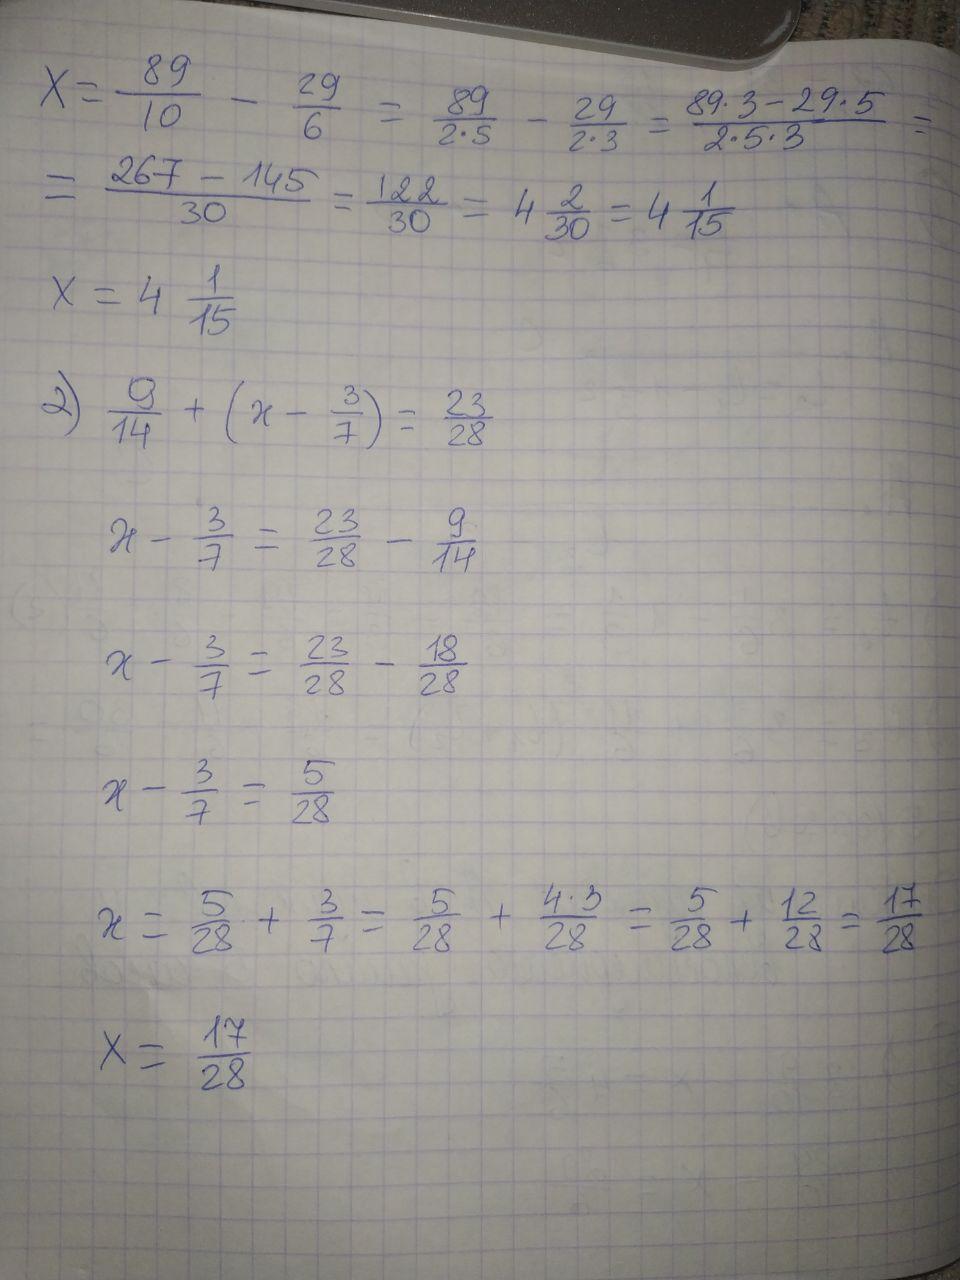 X = 89/10 - 29/6 = 89/2·5 - 29/2·3 = 89·3-29·5/2·5·3 =
= 267-145/30 = 122/30 = 4 2/30 = 4 1/15
X = 4 1/15
2) 9/14 + (x - 3/7) = 23/28
x - 3/7 = 23/28 - 9/14
x - 3/7 = 23/28 - 18/28
x - 3/7 = 5/28
x = 5/28 + 3/7 = 5/28 + 4·3/28 = 5/28 + 12/28 = 17/28
X = 17/28